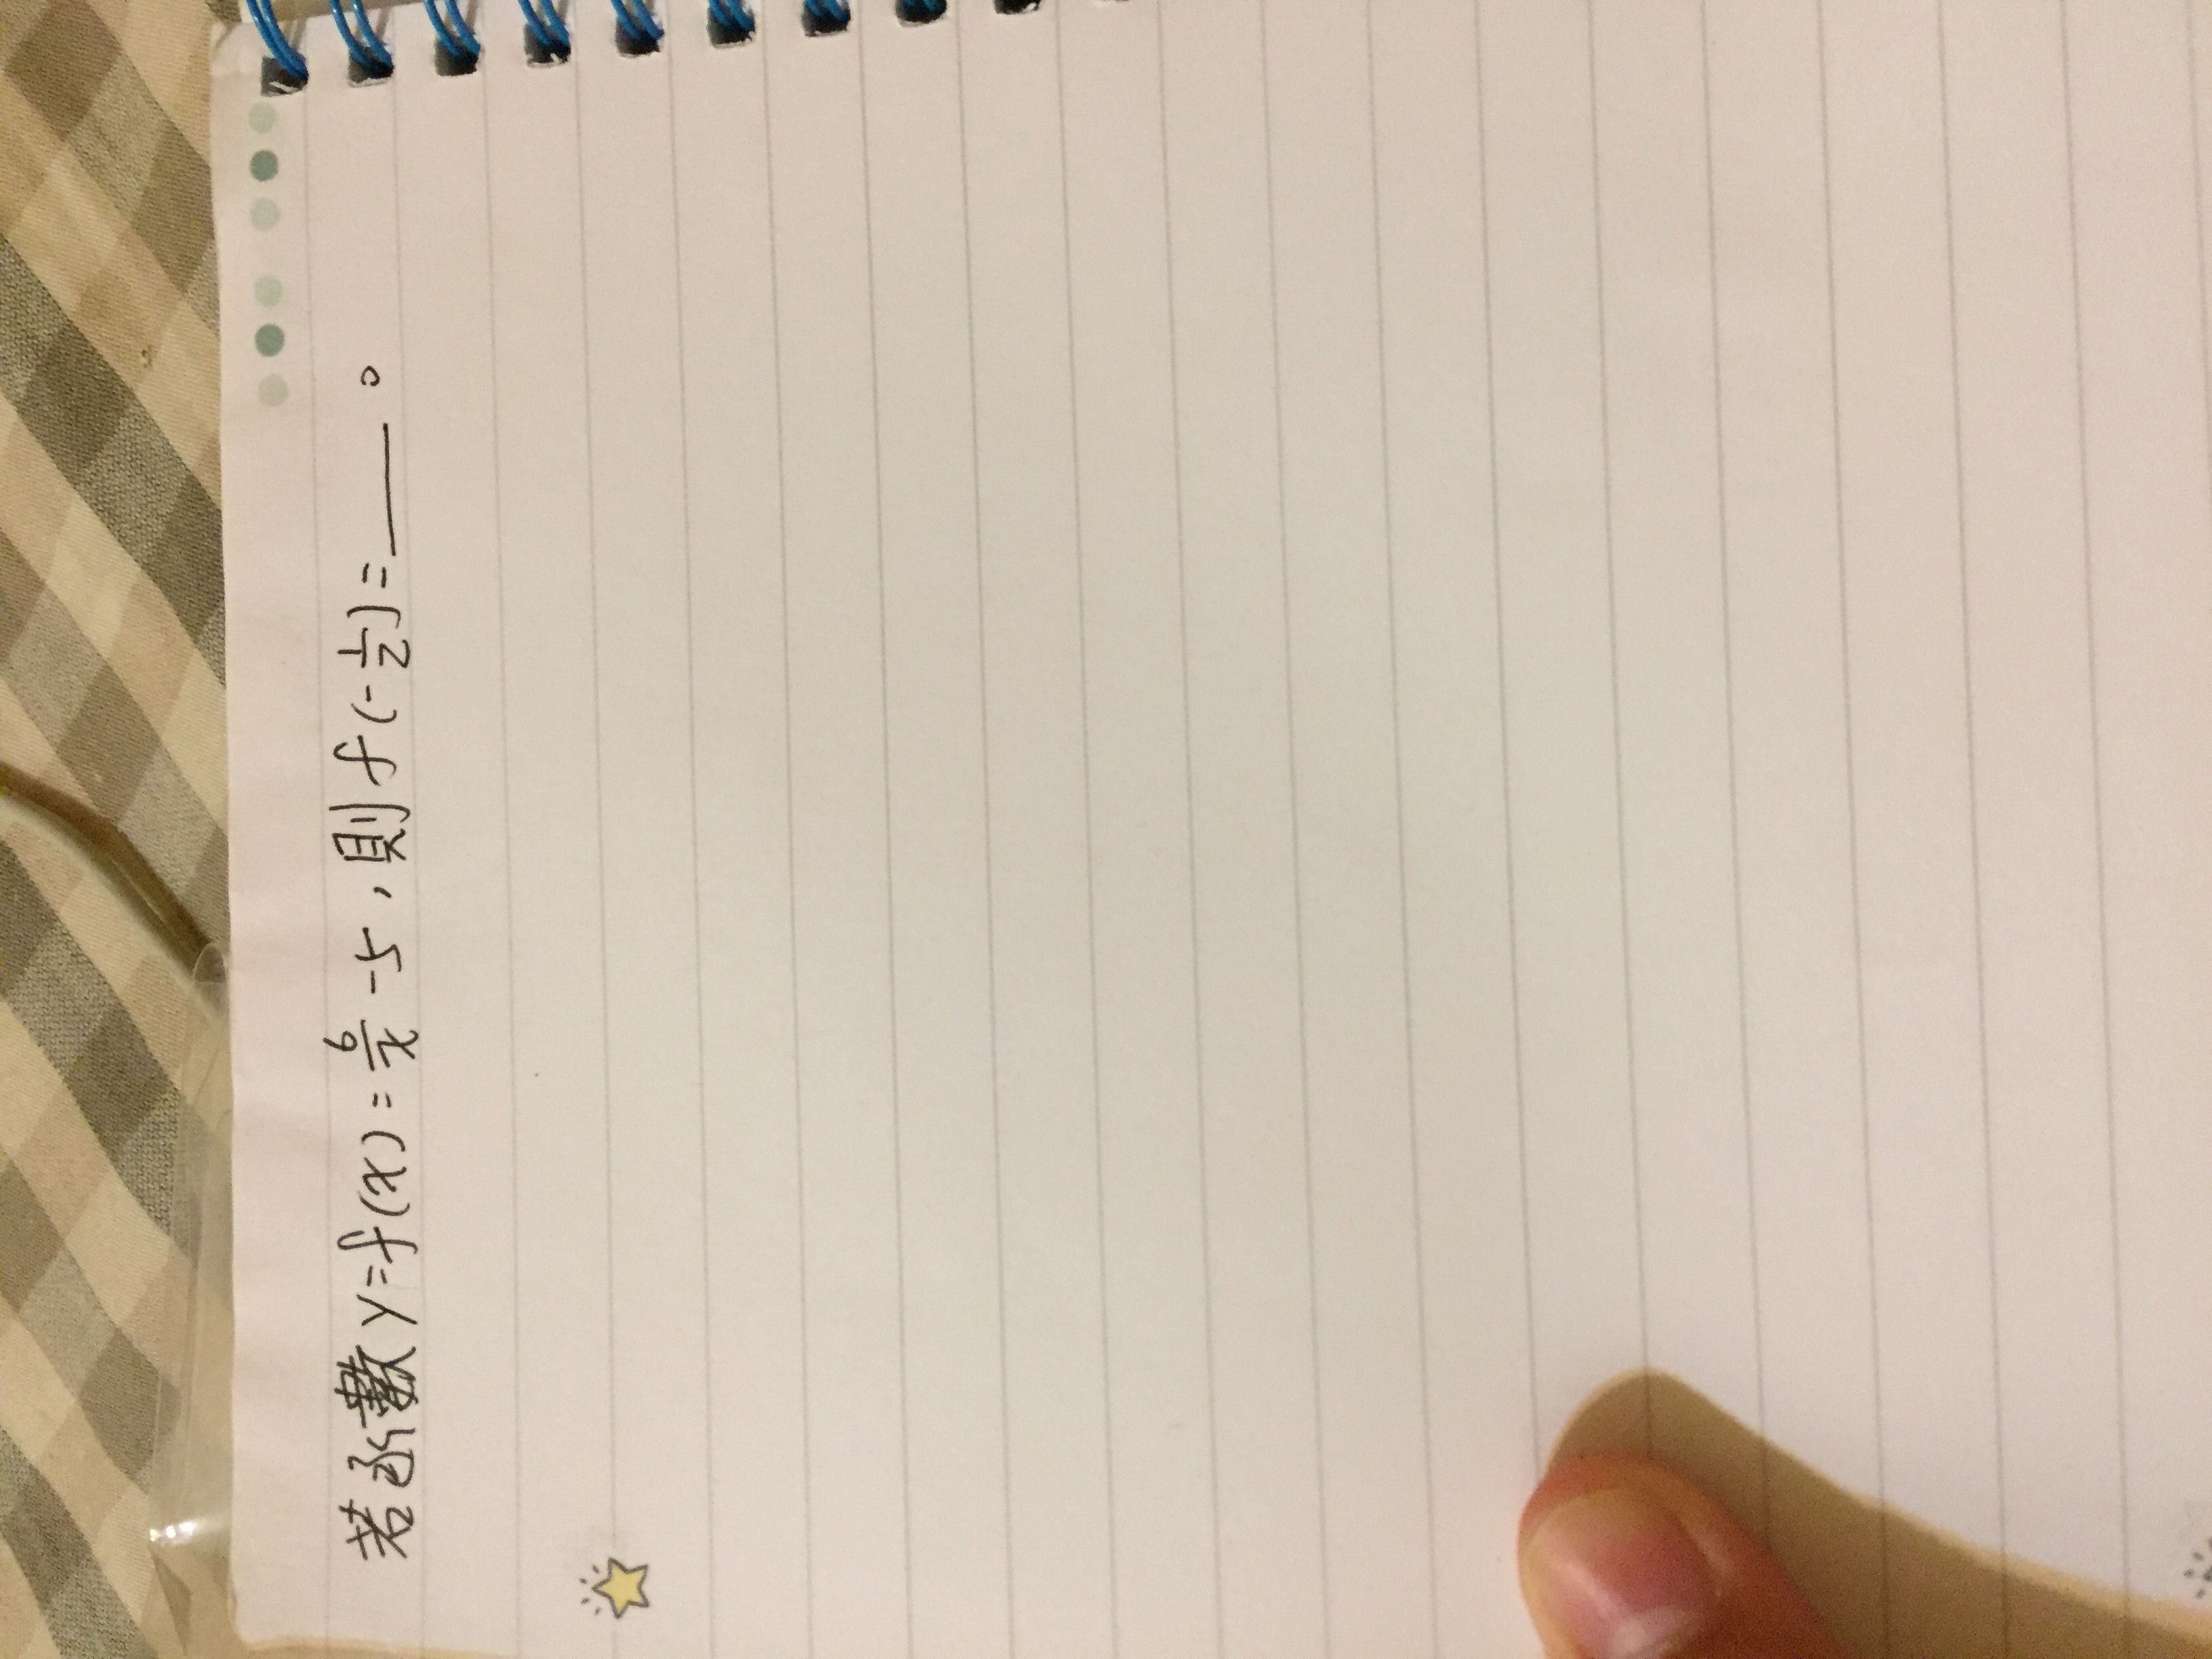 若函數 y=f(x)=6/x-5,則f(-1/2)=____。